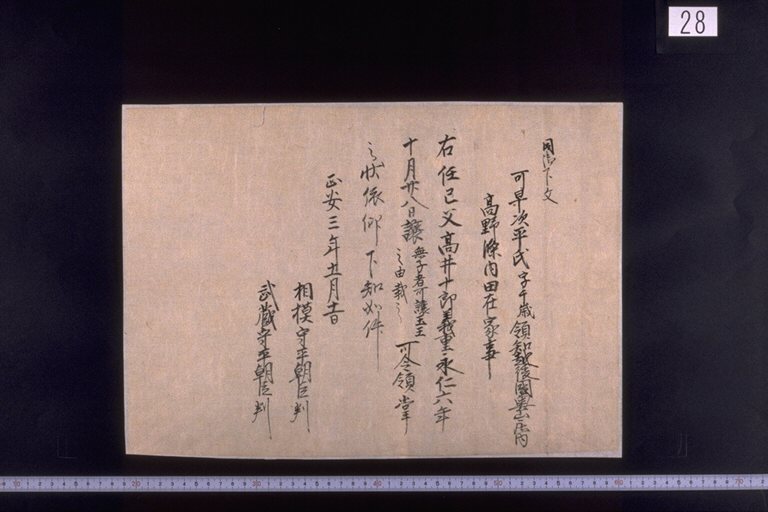 28
同御下文
可早次平氏字千歳領知越後国奥山庄内
高野条内田在家事
右任亡父高井十郎義重永仁六年
十月廿八日譲無子者可譲玉王之由載之可令領掌
之状依仰下知如件
正安三年五月
相模守平朝臣判
武蔵守平朝臣判
10 20 30 40 50 60 70